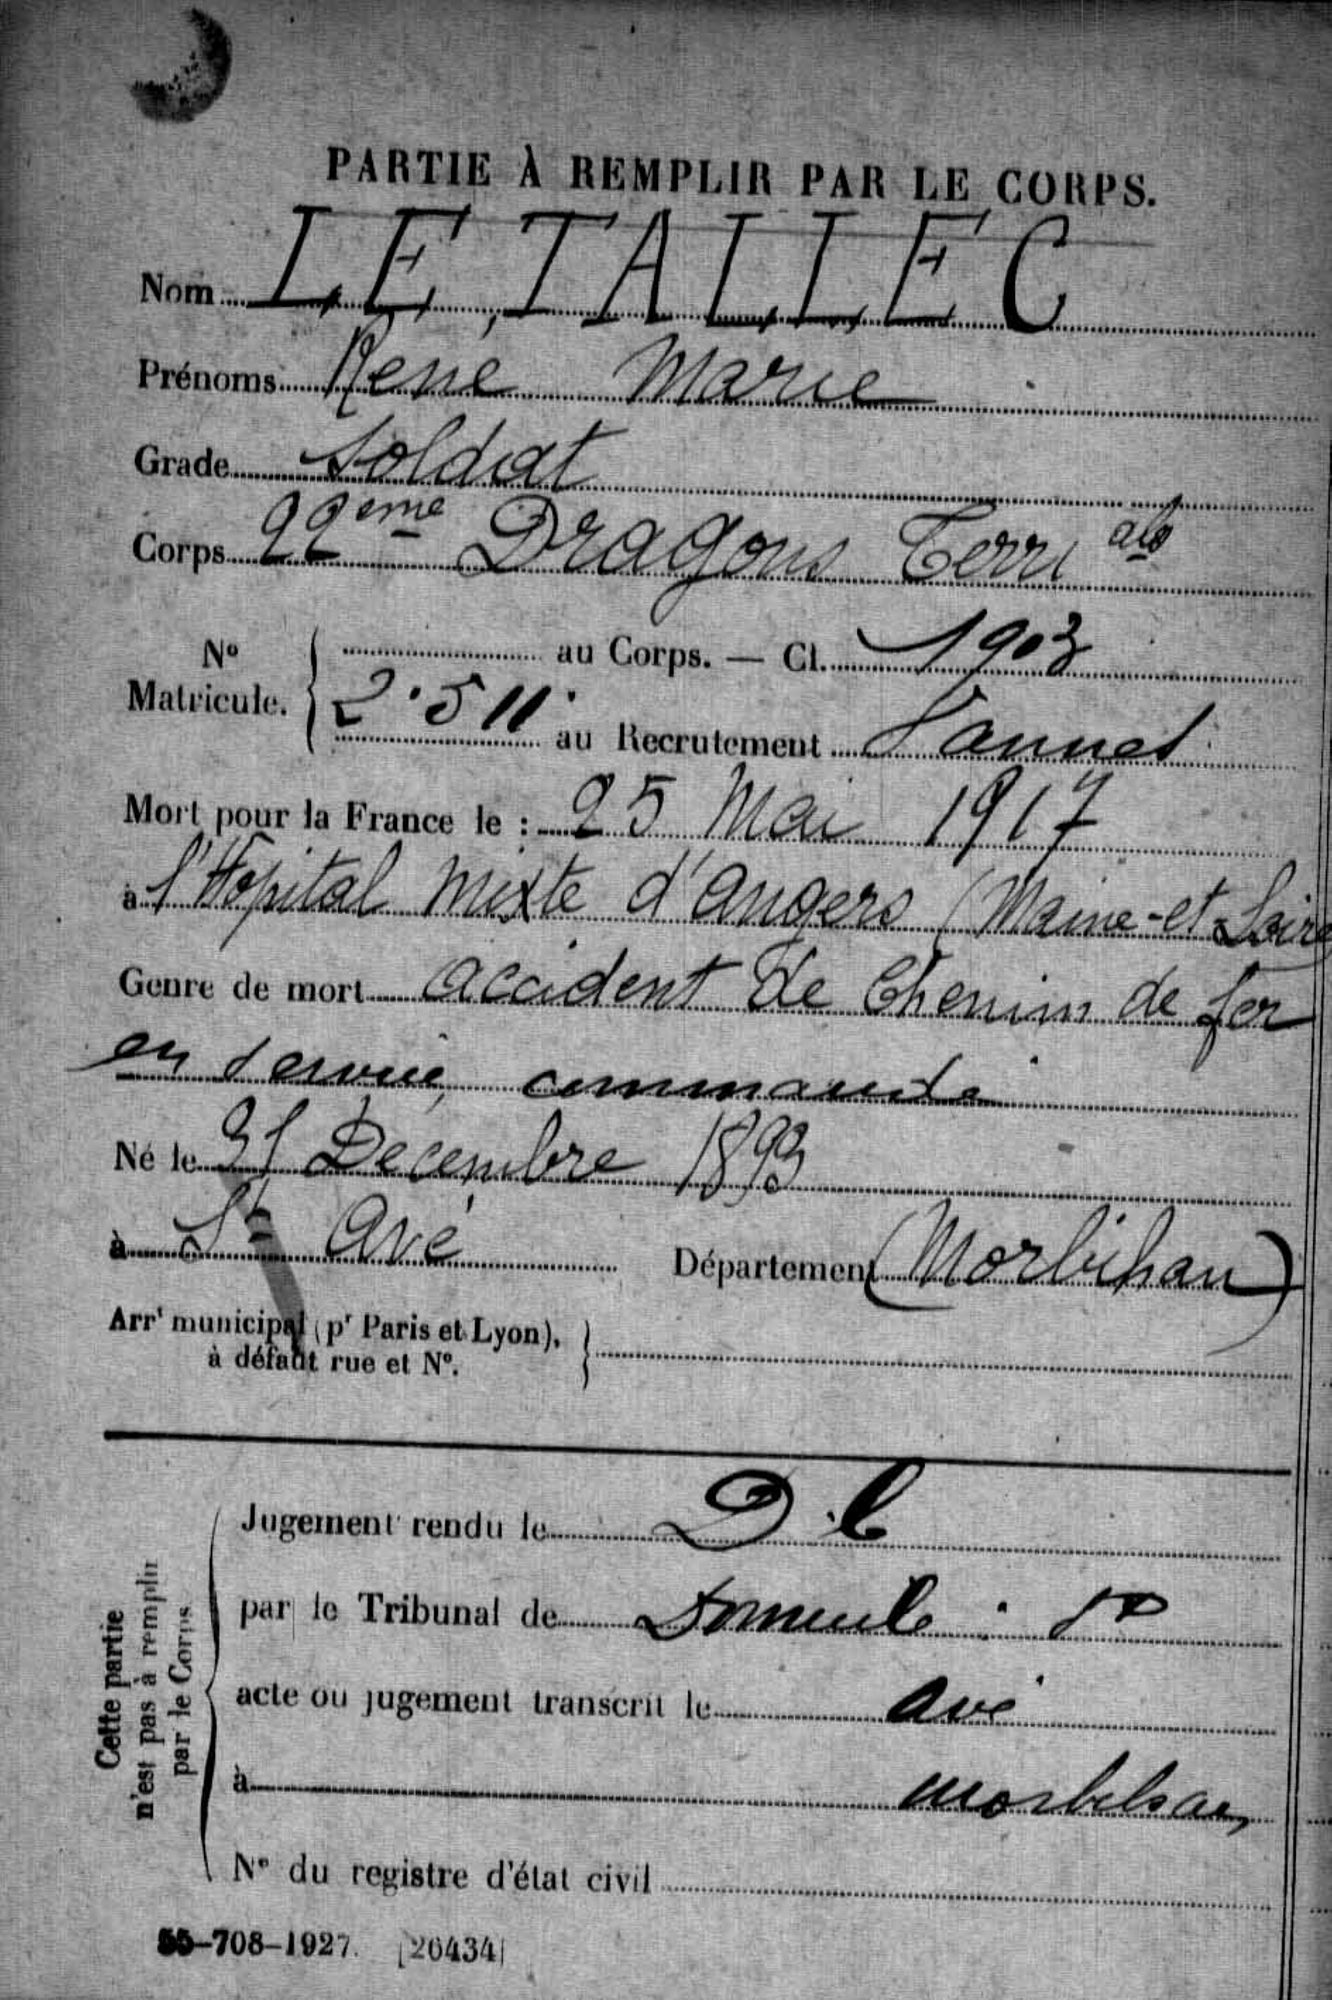 PARTIE À REMPLIR PAR LE CORPS.
Nom LE TALLEC
Prénoms René Marie
Grade Soldat
Corps 22ème Dragons Terri ale
N° Matricule. au Corps. — Cl. 1903
2.511. au Recrutement Vannes
Mort pour la France le : 25 Mai 1917
à l'Hôpital Mixte d'Angers (Maine-et-Loire
Genre de mort accident de Chemin de fer
en service commandé
Né le 31 Décembre 1893
à St Avé Département (Morbihan)
Arrt municipal (pr Paris et Lyon),
à défaut rue et N°.
Cette partie
n'est pas à remplir
par le Corps.
Jugement rendu le D.C
par le Tribunal de Domicile : St
acte ou jugement transcrit le Avé
à Morbihan
N° du registre d'état civil
55-708-1927. [26434]